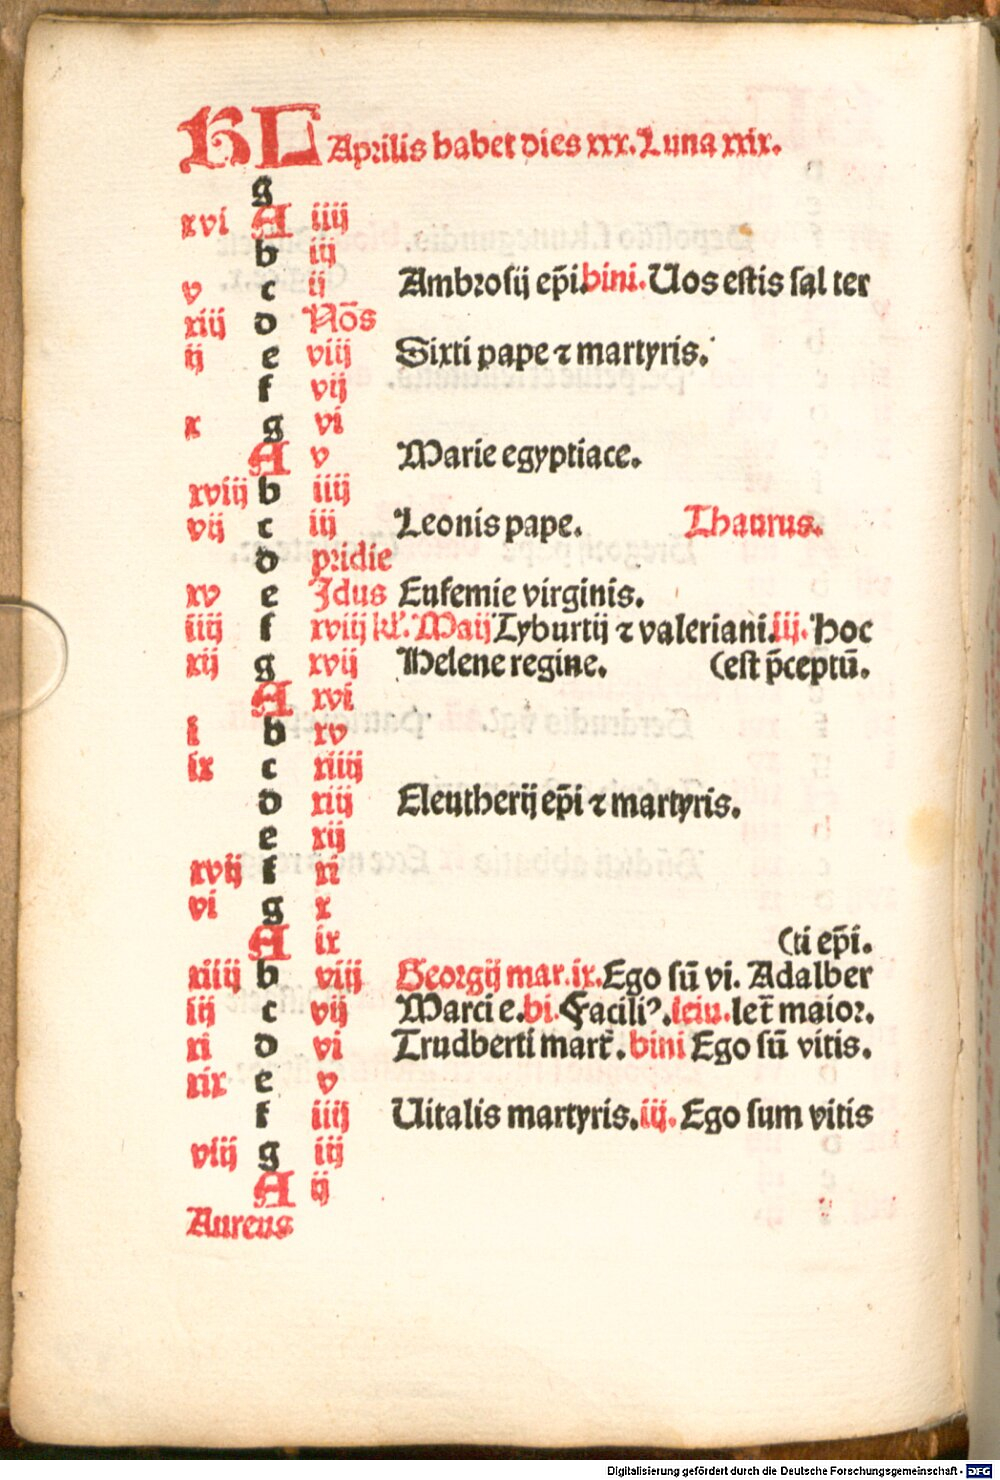 KL Aprilis habet dies xxx. Luna xxix.
g
xvi A iiij
b iij
v c ij Ambrosij ep̄i. bini. Uos estis sal ter
xiij d Nōs
ij e viij Sixti pape ⁊ martyris.
f vij
x g vi
A v Marie egyptiace.
xviij b iiij
vij c iij Leonis pape. Thaurus.
d pridie
xv e Idus Eufemie virginis.
iiij f xviij kl'. Maij Tyburtij ⁊ valeriani. iij. Hoc
xij g xvij Helene regine. (est p̄ceptū.
A xvi
i b xv
ix c xiiij
d xiij Eleutherij ep̄i ⁊ martyris.
e xij
xvij f xi
vi g x
A ix (ti ep̄i.
xiiij b viij Georgij mar. ix. Ego sū vi. Adalber
iij c vij Marci e. bi. Faciliꝰ. ieiu. let̄ maior.
xi d vi Trudberti mart̄. bini Ego sū vitis.
xix e v
f iiij Uitalis martyris. iij. Ego sum vitis
viij g iij
A ij
Aureus
Digitalisierung gefördert durch die Deutsche Forschungsgemeinschaft - DFG